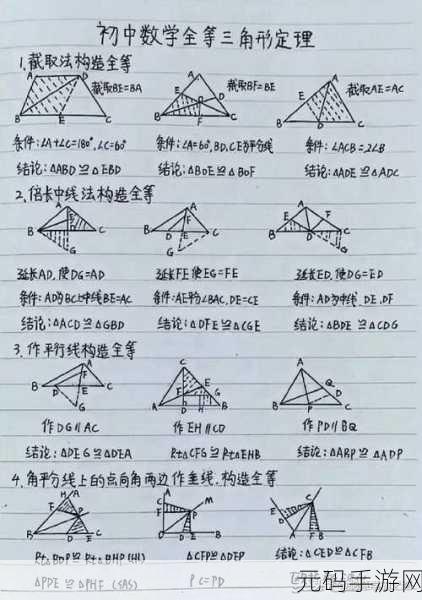 初中数学全等三角形定理
1.截取法构造全等
截取BE=BA 截取BF=BE 截取AE=AC
条件:∠A+∠C=180°,∠C=60° 条件:∠A=60°,BD,CE为平分线 条件:∠ACB=2∠B
结论:△ABD≌△EBD 结论:△BOE≌△BOF 结论:△ADE≌△ADC
2.倍长中线法构造全等
延长AD,使DG=AD 延长FE使EG=FE 延长ED,使DG=ED
条件:AD为BC上中线BE=AC 条件:AE平分∠BAC,DE=CE 条件:AD为中线,DE,DF
结论:△ACD≌△GBD 结论:△DFE≌△CGE 结论:△BDE≌△CDG
3.作平行线构造全等
作DG∥AC 作EH∥CD 作PD∥BQ
结论:△DEG≌△DEA Rt△CFG≌Rt△EHB 结论:△ABP≌△ADP
4.角平分线上的点向角两边作垂线,构造全等
Rt△BDP≌Rt△BHP(HL) △CFP≌△DEP 结论:△CED≌△CFB
△PDE≌△PHF(SAS) PC=PD
元码手游网